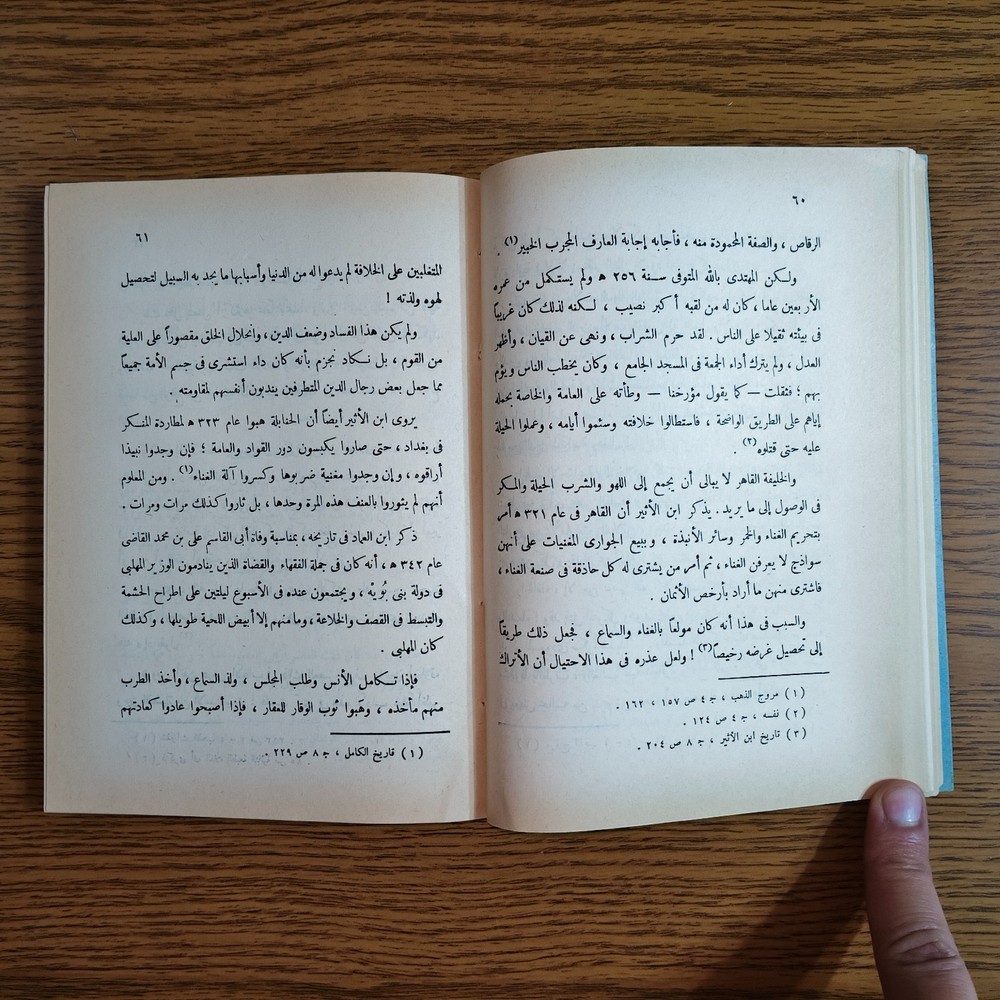 ٦٠
الرقاص ، والصفة المحمودة منه ، فأجابه إجابة العارف المجرب الخبير(١) .
ولكن المهتدى بالله المتوفى سنة ٢٥٦ ھ ولم يستكمل من عمره
الأربعين عاما ، كان له من لقبه أكبر نصيب ، لكنه لذلك كان غريباً
فى بيئته ثقيلا على الناس . لقد حرم الشراب ، ونهى عن القيان ، وأظهر
العدل ، ولم يترك أداء الجمعة فى المسجد الجامع ، وكان يخطب الناس ويؤم
بهم ؛ فثقلت — كما يقول مؤرخنا — وطأته على العامة والخاصة بحمله
إياهم على الطريق الواضحة ، فاستطالوا خلافته وسئموا أيامه ، وعملوا الحيلة
عليه حتى قتلوه(٢) .
والخليفة القاهر لا يبالى أن يجمع إلى اللهو والشرب الحيلة والمكر
فى الوصول إلى ما يريد . يذكر ابن الأثير أن القاهر فى عام ٣٢١ ھ أمر
بتحريم الغناء والخمر وسائر الأنبذة ، وببيع الجوارى المغنيات على أنهن
سواذج لا يعرفن الغناء ، ثم أمر من يشترى له كل حاذقة فى صنعة الغناء ،
فاشترى منهن ما أراد بأرخص الأثمان .
والسبب فى هذا أنه كان مولعاً بالغناء والسماع ، فجعل ذلك طريقاً
إلى تحصيل غرضه رخيصاً(٣) ! ولعل عذره فى هذا الاحتيال أن الأتراك
(١) مروج الذهب ، ج ٤ ص ١٥٧ ، ١٦٢ .
(٢) نفسه ، ج ٤ ص ١٢٤ .
(٣) تاريخ ابن الأثير ، ج ٨ ص ٢٠٤ .
٦١
المتغلبين على الخلافة لم يدعوا له من الدنيا وأسبابها ما يجد به السبيل لتحصيل
لهوه ولذته !
ولم يكن هذا الفساد وضعف الدين ، وانحلال الخلق مقصوراً على العلية
من القوم ، بل نكاد نجزم بأنه كان داء استشرى فى جسم الأمة جميعاً
مما جعل بعض رجال الدين المتطرفين يندبون أنفسهم لمقاومته .
يروى ابن الأثير أيضاً أن الحنابلة هبوا عام ٣٢٣ ھ لمطاردة المنكر
فى بغداد ، حتى صاروا يكبسون دور القواد والعامة ؛ فإن وجدوا نبيذا
أراقوه ، وإن وجدوا مغنية ضربوها وكسروا آلة الغناء(١) . ومن المعلوم
أنهم لم يثوروا بالعنف هذه المرة وحدها ، بل ثاروا كذلك مرات ومرات .
ذكر ابن العماد فى تاريخه ، بمناسبة وفاة أبى القاسم على بن محمد القاضى
عام ٣٤٢ ھ ، أنه كان فى جملة الفقهاء والقضاة الذين ينادمون الوزير المهلبى
فى دولة بنى بُوَيْه ، ويجتمعون عنده فى الأسبوع ليلتين على اطراح الحشمة
والتبسط فى القصف والخلاعة ، وما منهم إلا أبيض اللحية طويلها ، وكذلك
كان المهلبى .
فإذا تكامل الأنس وطلب المجلس ، ولذ السماع ، وأخذ الطرب
منهم مأخذه ، وهبوا ثوب الوقار للعقار ، فإذا أصبحوا عادوا كعادتهم
(١) تاريخ الكامل ، ج ٨ ص ٢٢٩ .